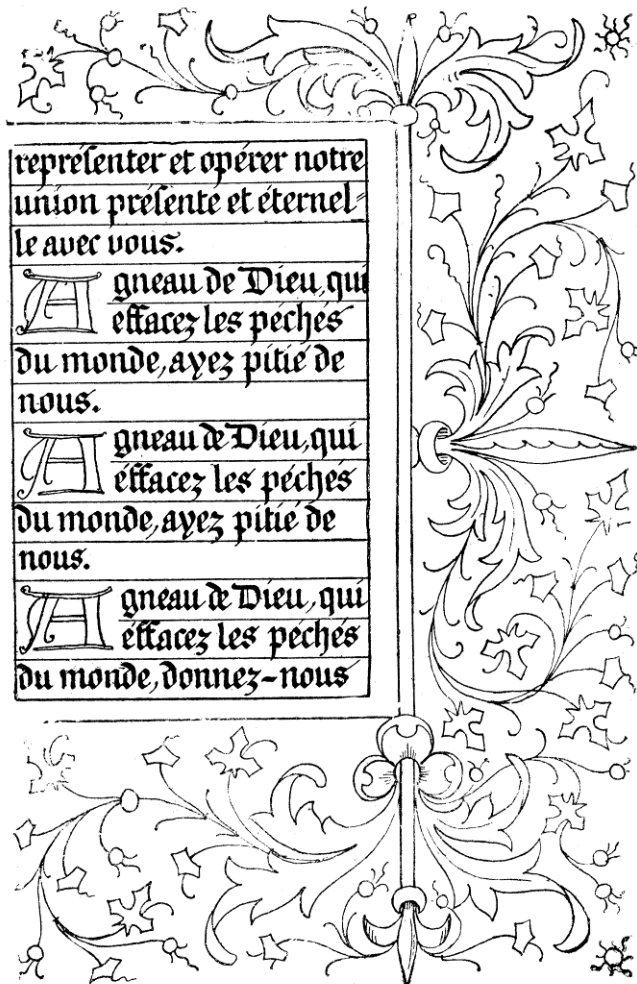 représenter et opérer notre
union présente et éternel-
le avec vous.
Agneau de Dieu, qui
effacez les péchés
du monde, ayez pitié de
nous.
Agneau de Dieu, qui
effacez les péchés
du monde, ayez pitié de
nous.
Agneau de Dieu, qui
effacez les péchés
du monde, donnez-nous